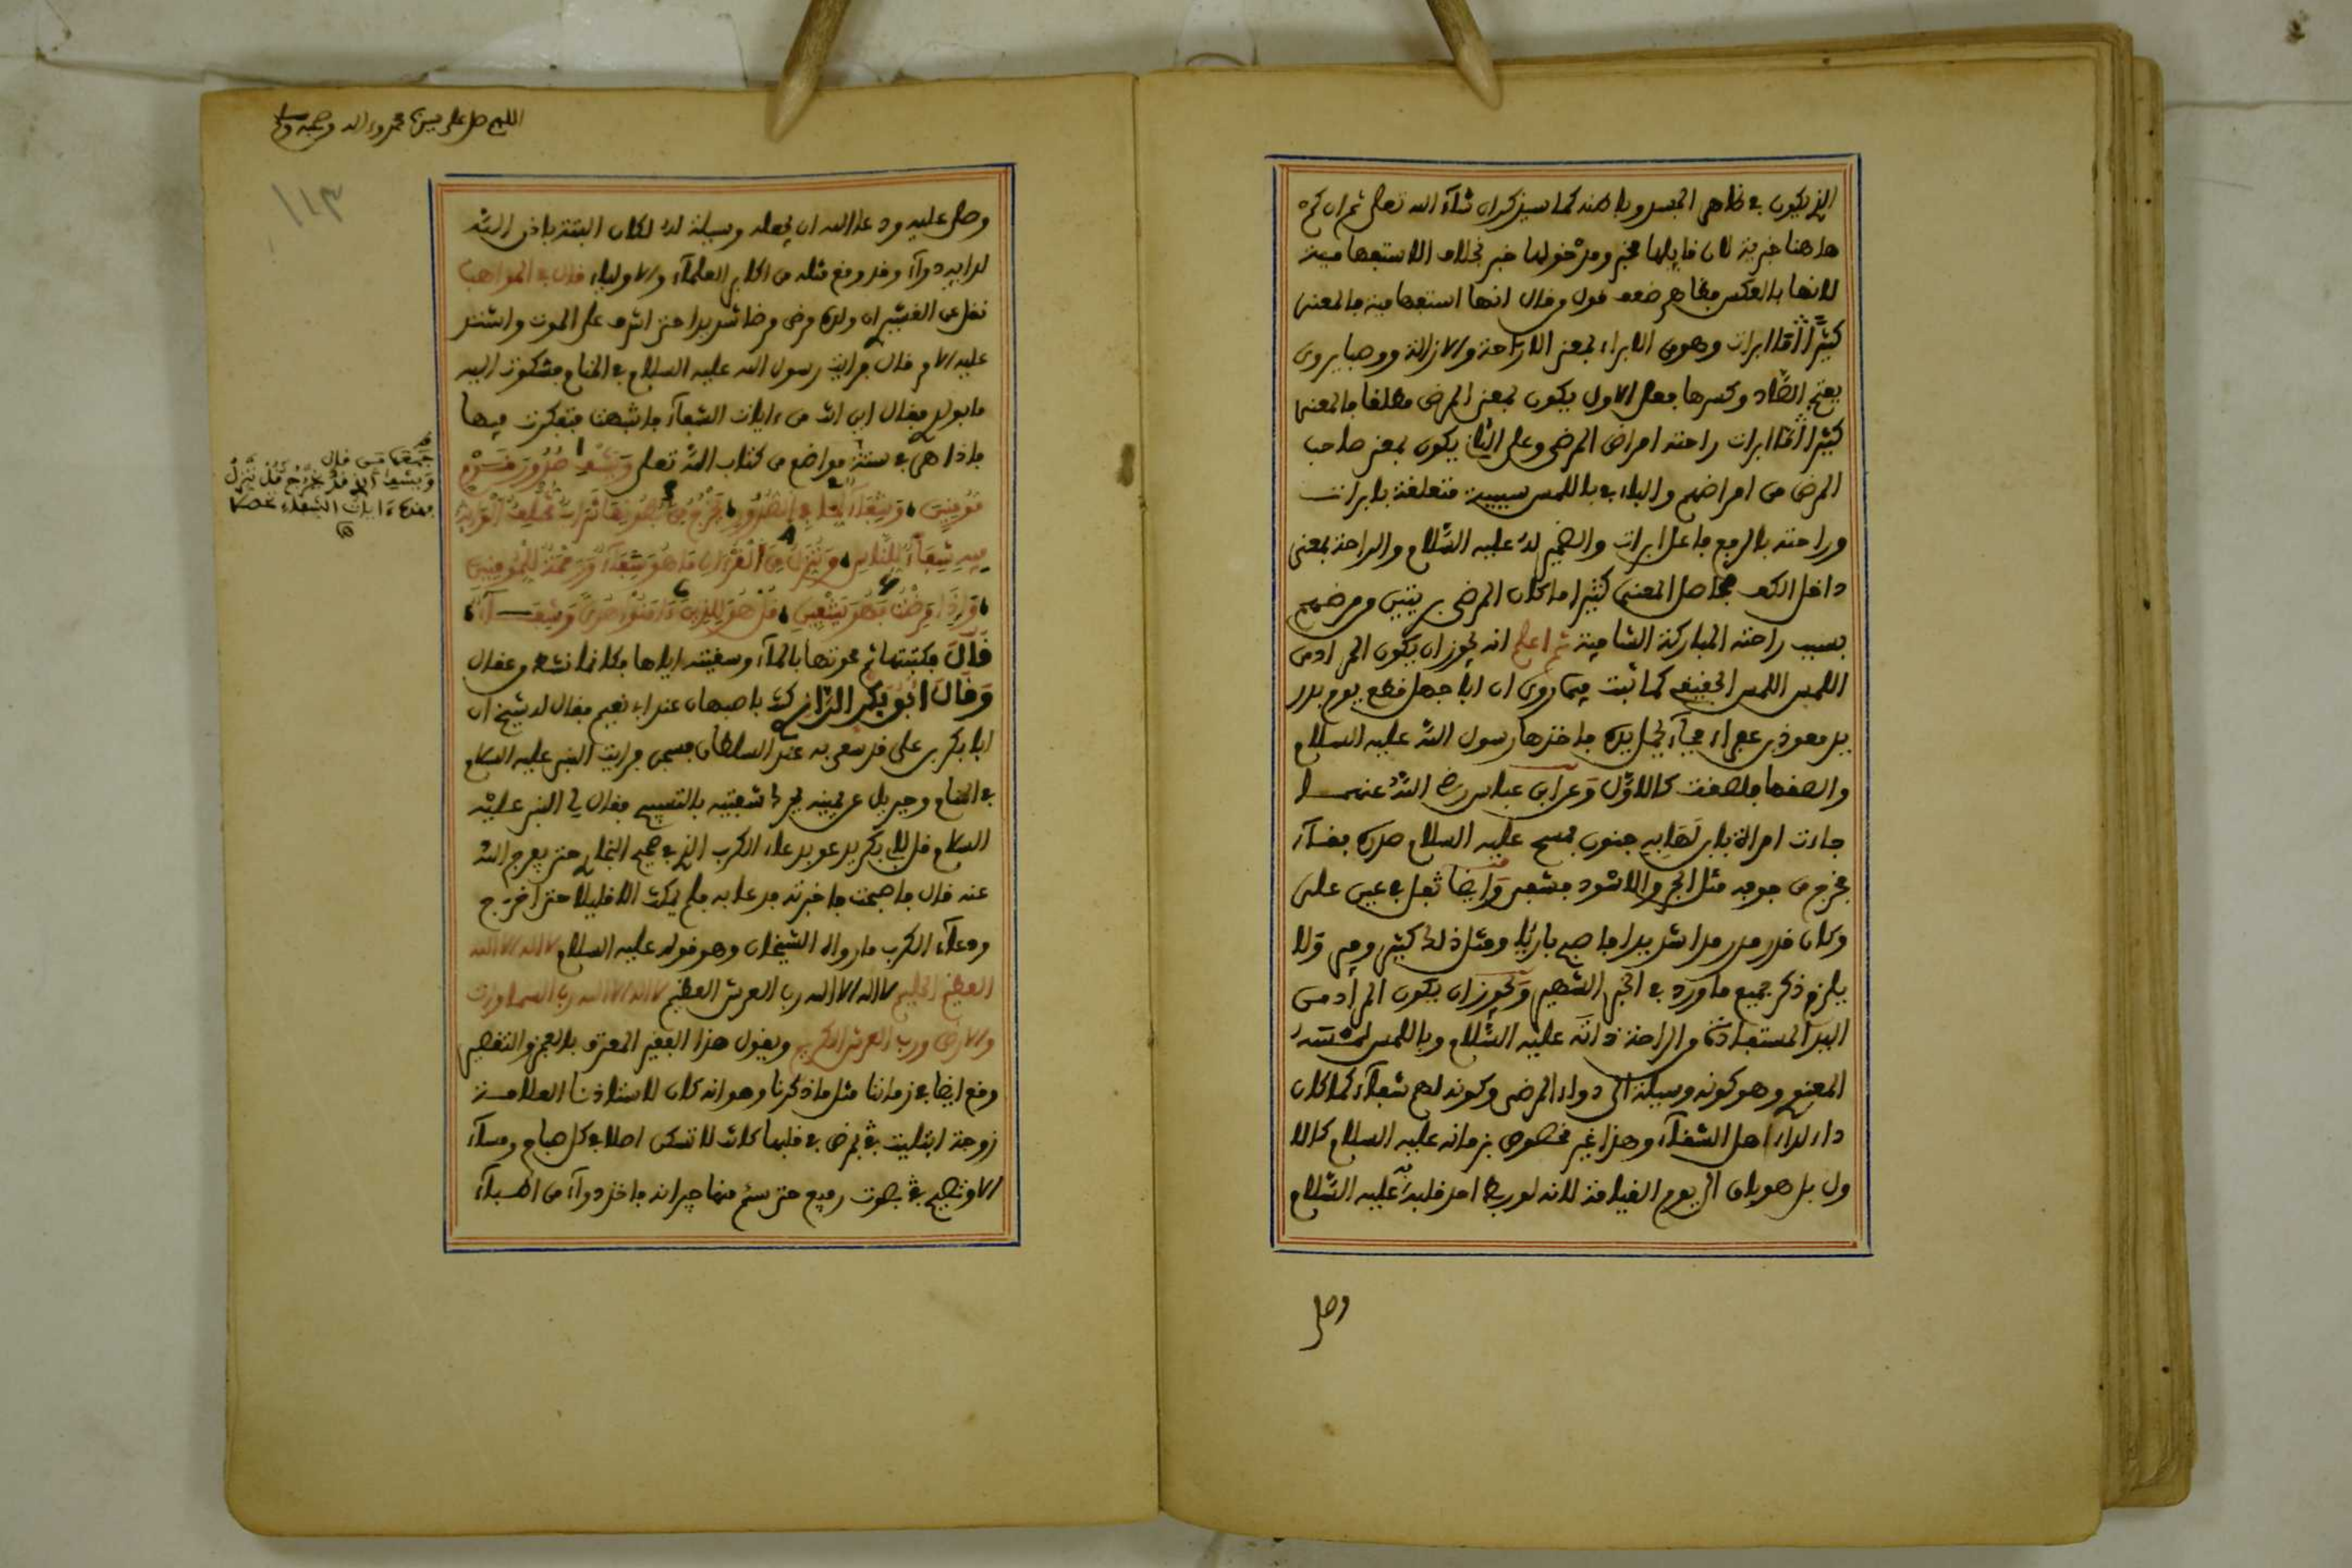 الذي يكون في ظاهر الجسد وباطنه كما سيذكر ان شاء الله تعلى ثم ان كم
هاهنا خبرية لان قايلها مخبر ومدخولها خبر بخلاف الاستفهامية
لانها بالعكس فظاهر ضعف قول وقال انها استفهامية فالمعنى
كثيرا اما ابرات وهو من الابراء بمعنى الازاحة والازالة ووصبا يروى
بفتح الصاد وكسرها فعلى الاول يكون بمعنى المرض مطلقا فالمعنى
كثيرا اما ابرات راحته امراض المرضى وعلى الثاني يكون بمعنى صاحب
المرض من امراضهم والباء في باللمس سببية متعلقة بابرات
وراحته بالرفع فاعل ابرات والضمير له عليه السلام والراحة بمعنى
داخل الكف فحاصل المعنى كثيرا ما كان المرضى بريئين من مرضهم
بسبب راحته المباركة الشافية ثم اعلم انه يجوز ان يكون المراد من
اللمس اللمس الحقيقي كما ثبت فيما روي ان ابا جهل قطع يوم بدر
يد معوذ بن عفراء فجاء يحمل يده فاخذها رسول الله عليه السلام
والصقها فلصقت كالاول وعن ابن عباس رضي الله عنهما
جاءت امراة بابن لها به جنون فمسح عليه السلام صدره فقاء
فخرج من جوفه مثل الجرو الاسود فشفي وايضا تفل في عيني علي
وكان قد رمد رمدا شديدا فاصبح بارئا ومثل ذلك كثير ولا
يلزم ذكر جميع ما ورد في الخبر الشهير ويجوز ان يكون المراد من
البرء المستفاد من الراحة ذاته عليه السلام وباللمس لمسه
المعنوي وهو كونه وسيلة الى دواء المرضى وكونه لهم شفاء كما كان
دار لداء اهل الشفاء وهذا غير مخصوص بزمانه عليه السلام كالا
ول بل هو باق الى يوم القيامة لانه لو ربط احد قلبه به عليه السلام
وصلى
اللهم صل على سيدنا محمد واله وصحبه وسلم
١١٣
وصلى عليه ودعا الله ان يجعله وسيلة له لكان البتة باذن الله
لدايه دواء وقد وقع مثله من اكابر العلماء والاولياء قال في المواهب
نقل عن القشيري ان ولده مرض مرضا شديدا حتى اشرف على الموت واشتد
عليه الامر قال فرايت رسول الله عليه السلام في المنام فشكوت اليه
ما بولدي فقال اين انت من ءايات الشفاء فانتبهت فتفكرت فيها
فاذا هي في ستة مواضع من كتاب الله تعلى ويشف صدور قوم
مومنين وشفاء لما في الصدور يخرج من بطونها شراب مختلف الوانه
فيه شفاء للناس وننزل من القرءان ما هو شفاء ورحمة للمومنين
واذا مرضت فهو يشفين قل هو للذين ءامنوا هدى وشفاء
قال فكتبتها ثم محوتها بالماء وسقيته اياها فكانما نشط من عقال
وقال ابو بكر الرازي كنت باصبهان عند ابي نعيم فقال له شيخ ان
ابا بكر بن علي قد سعي به عند السلطان فسجن فرايت النبي عليه السلام
في المنام وجبريل عن يمينه يحرك شفتيه بالتسبيح فقال لي النبي عليه
السلام قل لابي بكر يدعو بدعاء الكرب الذي في صحيح البخاري حتى يفرج الله
عنه قال فاصبحت فاخبرته فدعا به فلم يمكث الا قليلا حتى اخرج
ودعاء الكرب ما رواه الشيخان وهو قوله عليه السلام لا اله الا الله
العظيم الحليم لا اله الا الله رب العرش العظيم لا اله الا الله رب السماوات
والارض ورب العرش الكريم ويقول هذا الفقير المعترف بالعجز والتقصير
وقع ايضا في زماننا مثل ما ذكرنا وهو انه كان لاستاذنا العلامة
زوجة ابتليت بمرض في قلبها كانت لا تسكن اصلا في كل صباح ومساء
الا وتصيح بصوت رفيع حتى سئم منها جيرانه فاخذ دواء من اطباء
جمعها من قال
ويشف ان قد يخرج قل ننزل
فهذه ءايات الشفاء تحصل